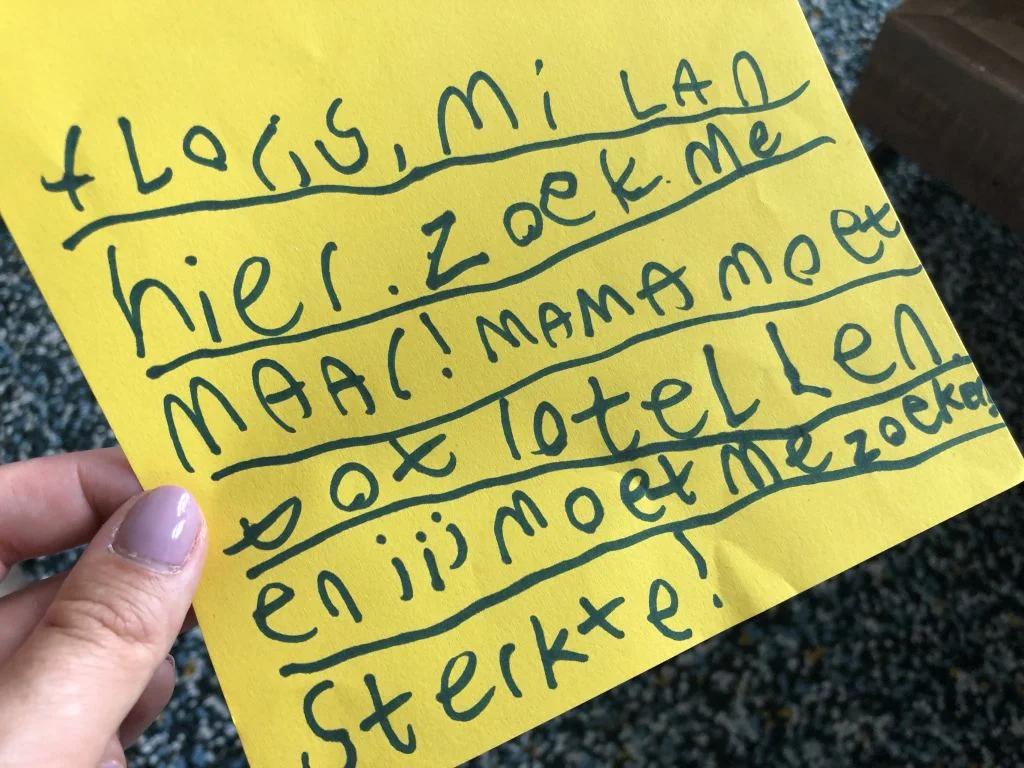 fLoris, Mi LAn
hier. zoek Me
MAAr! MAMA Moet
tot 10 teLLen.
en jij Moet Me zoeken.
Sterkte!